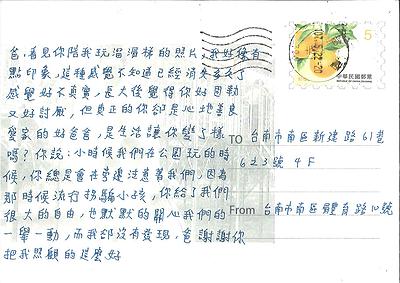 爸,看見你陪我玩溜滑梯的照片,我好像有
點印象,這種感覺不知道已經消失多久了
感覺好不真實,長大後覺得你好囉
又好討厭,但真正的你卻是心地善良
愛家的好爸爸,是生活讓你變了樣
嗎?你說:小時候我們在公園玩的時
候,你總是會在旁邊注意著我們,因為
那時候流行拐騙小孩,你給了我們
很大的自由,也默默的關心我們的
一舉一動,而我卻沒有發現,爸謝謝你
把我照顧的這麼好
5
中華民國郵票
REPUBLIC OF CHINA
TO 台南市南區新建路61巷
6弄3號4F
From 台南市南區體育路10號